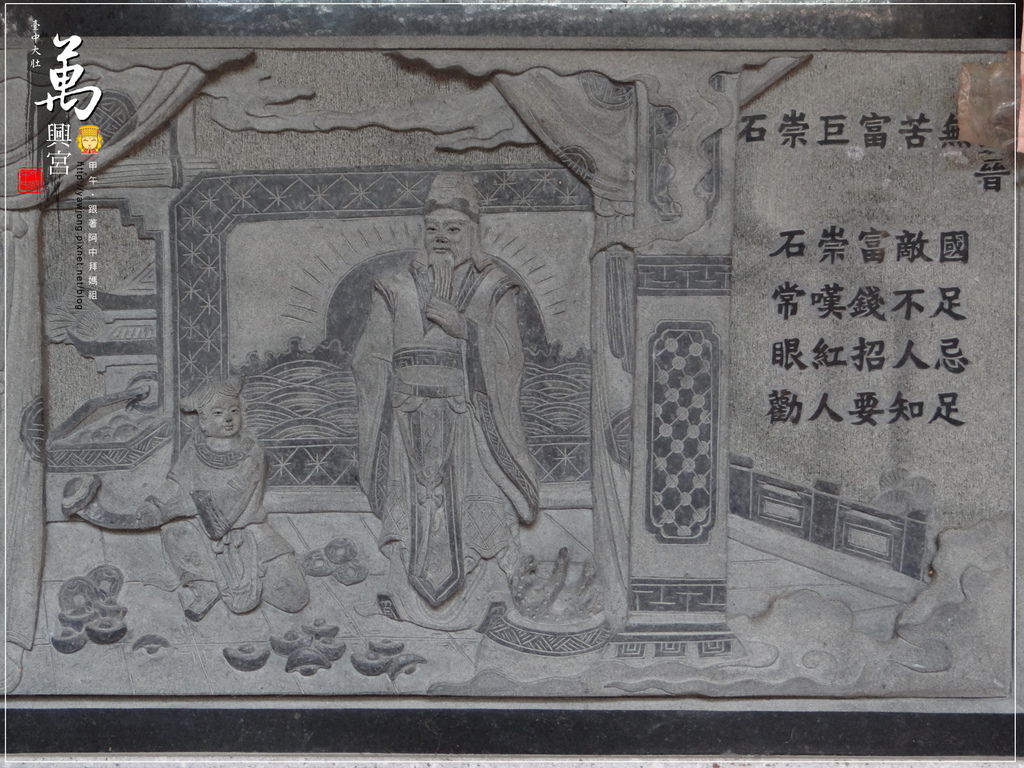 臺中大肚
萬興宮
甲午‧跟著阿中拜媽祖
http://yawrong.pixnet.net/blog
石崇巨富苦無
晉
石崇富敵國
常嘆錢不足
眼紅招人忌
勸人要知足